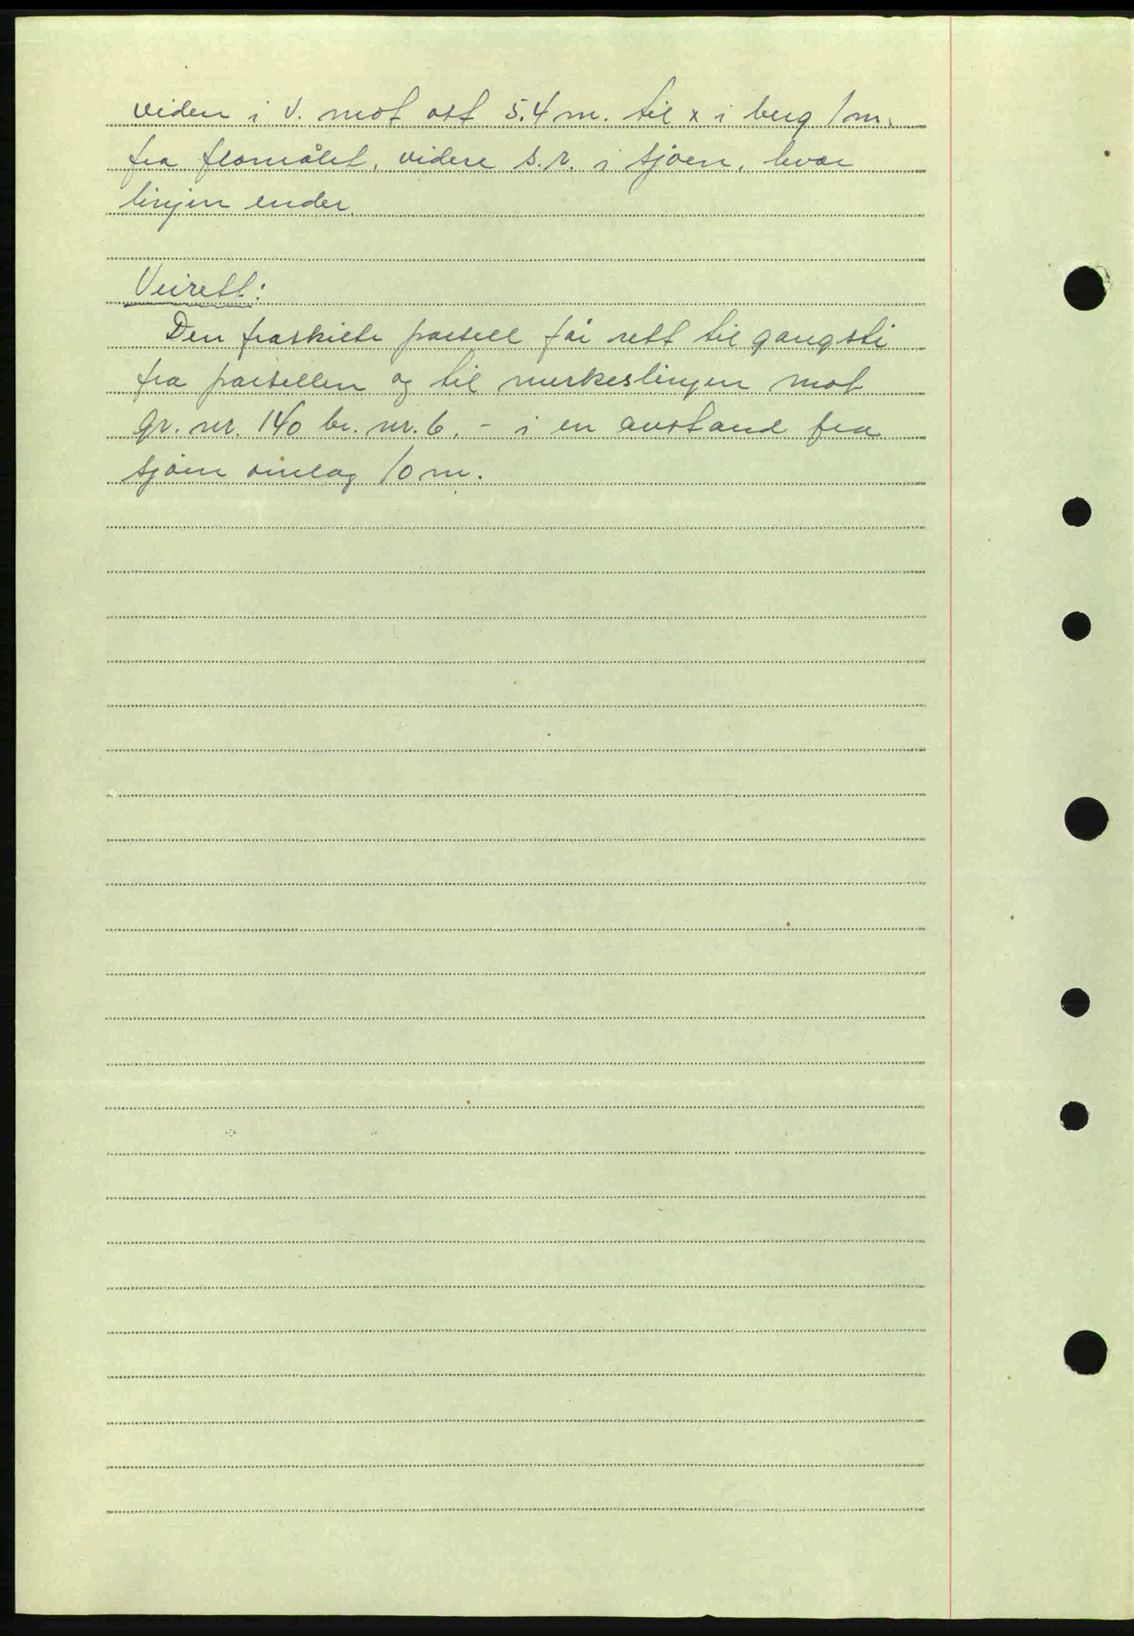 videre i V. mot øst 5.4 m. til x i berg 1 m.
fra flomålet, videre s.r. i sjøen, hvor
linjen ender.
Veirett:
Den fraskilte parsell får rett til gangsti
fra parsellen og til merkeslinjen mot
gr. nr. 140 br. nr. 6. - i en avstand fra
sjøen omlag 10 m.